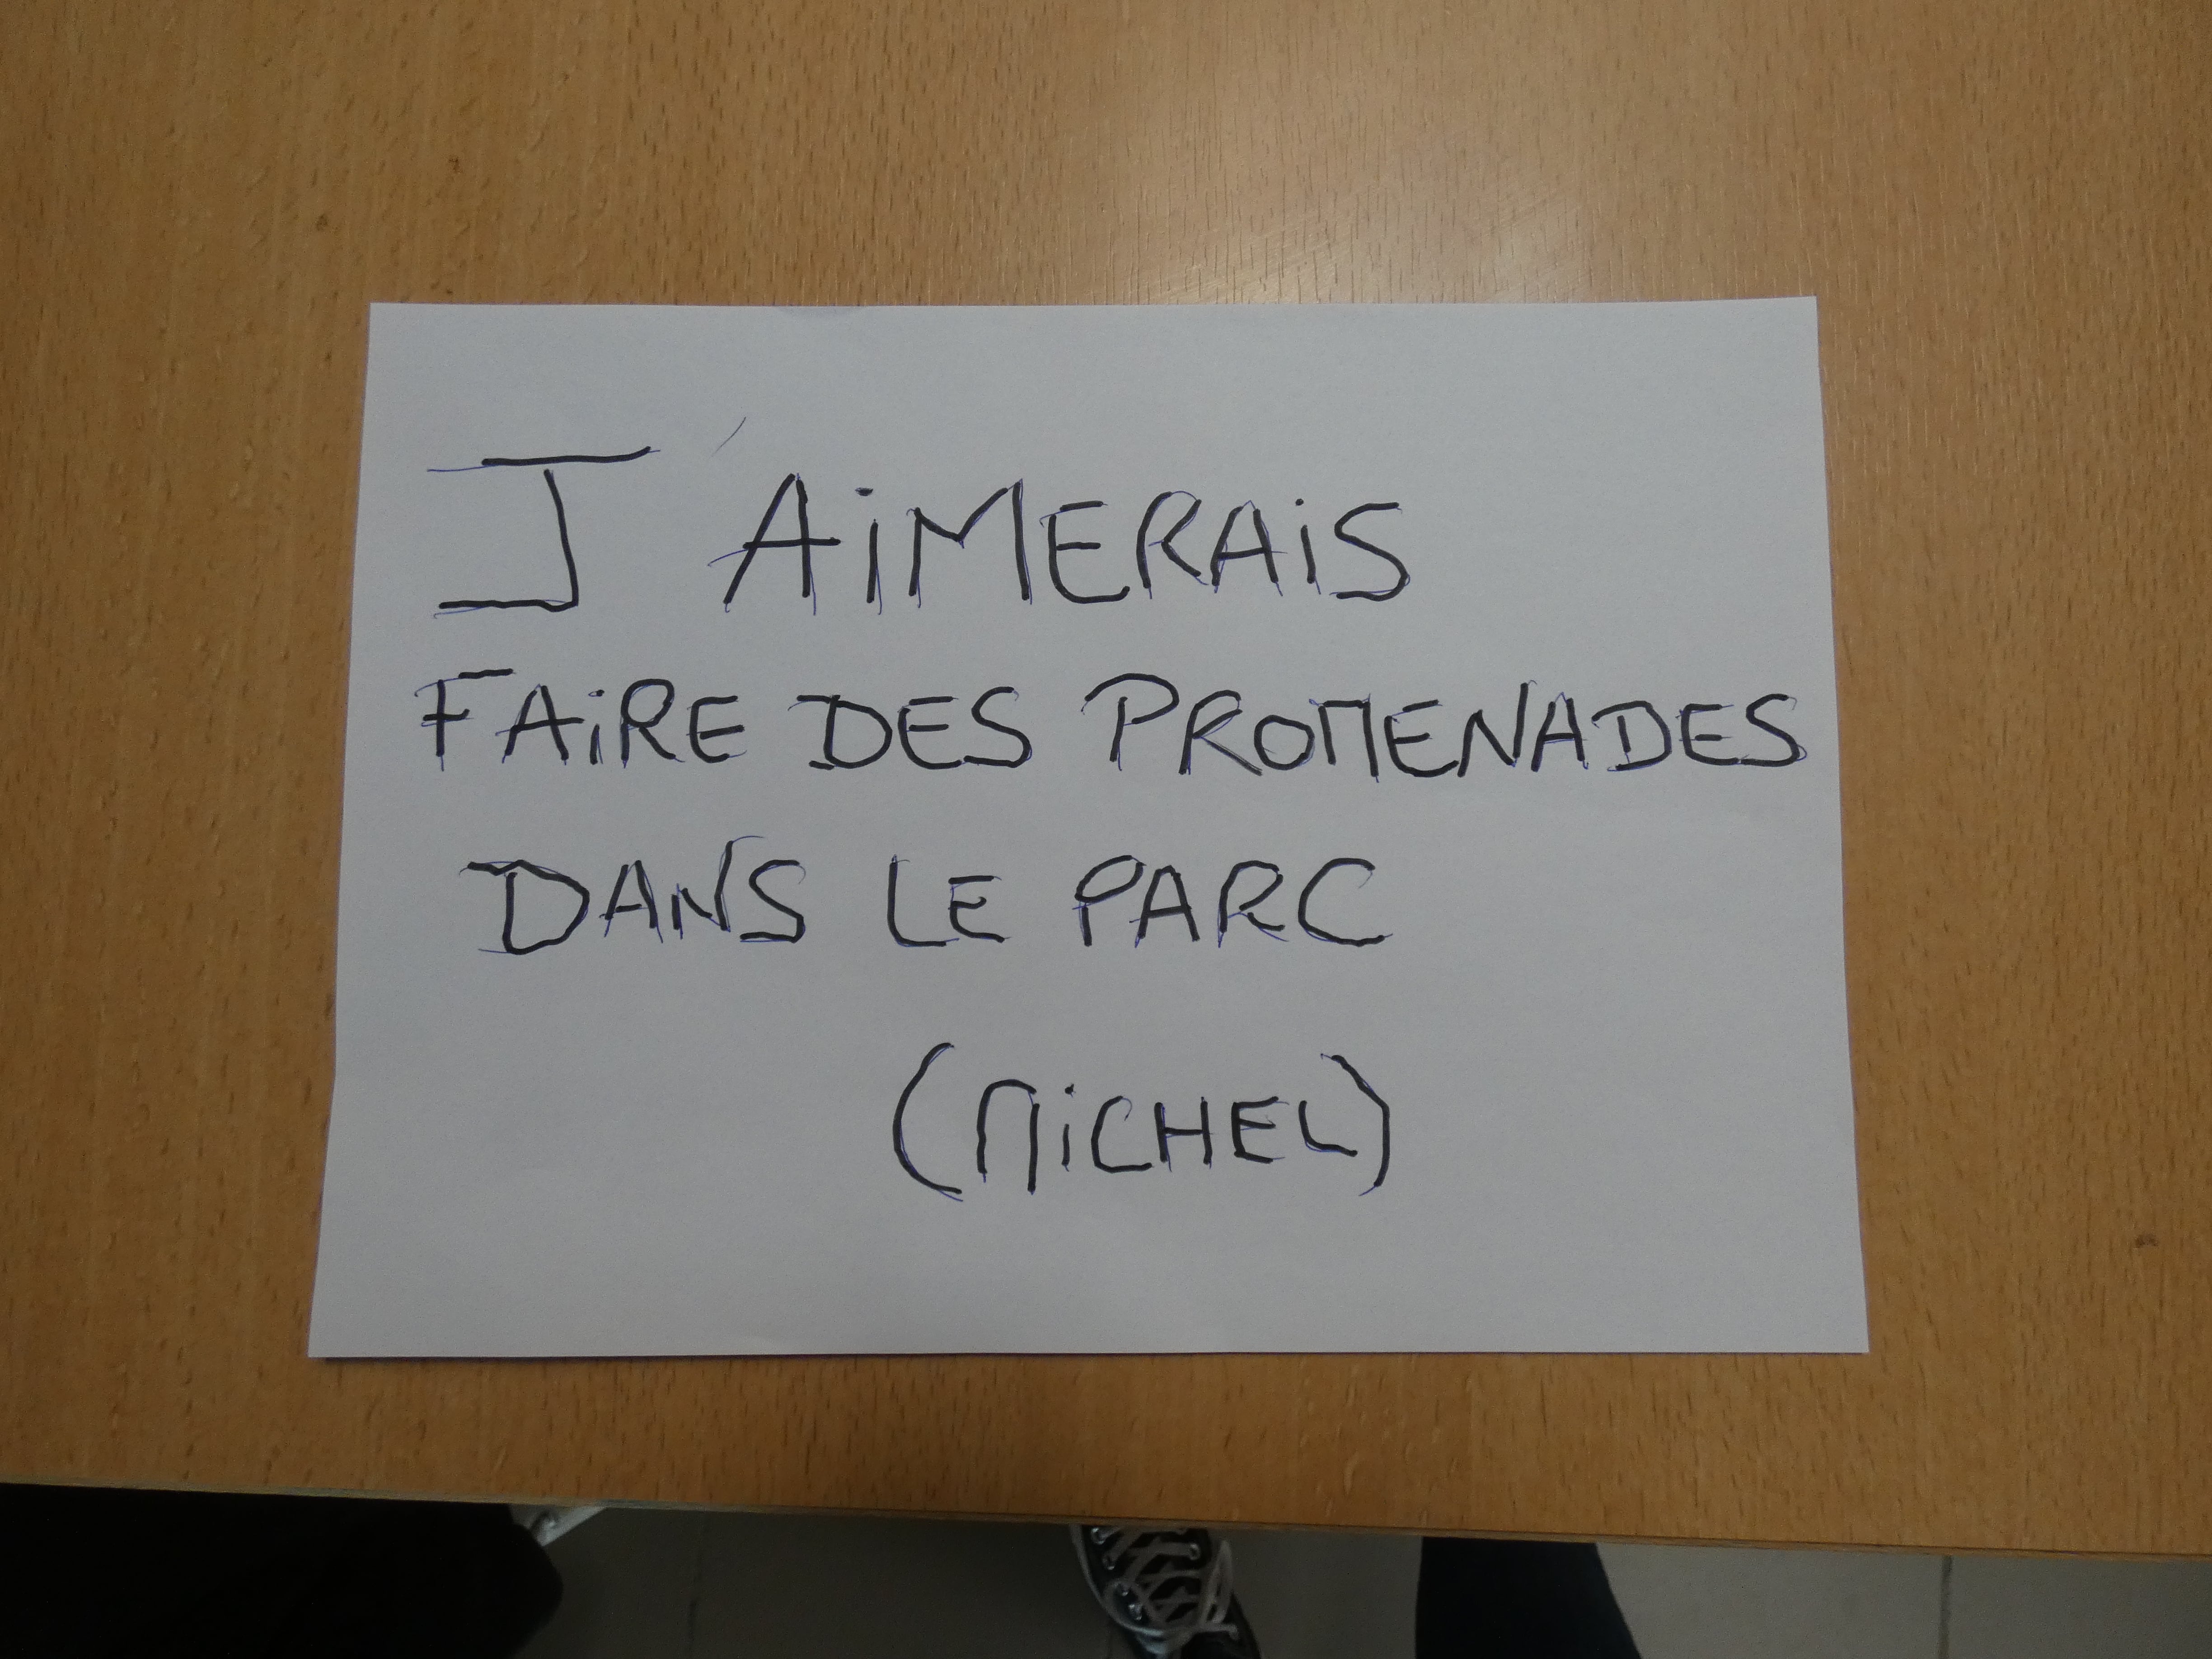 J'AiMERAiS
FAiRE DES PROMENADES
DANS LE PARC
(MiCHEL)